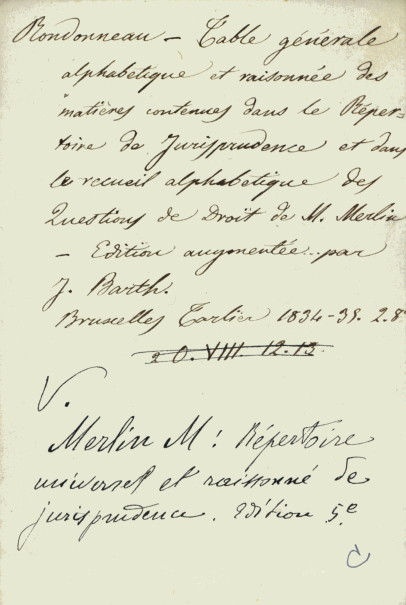 Rondonneau – Table générale
alphabetique et raisonnée des
matières contenues dans le Réper-
toire de Jurisprudence et dans
le recueil alphabetique des
Questions de Droit de M. Merlin
– Edition augmentée par
J. Barth.
Bruxelles Tarlier 1834-39. 2.8º
20.VIII.12.13
V.
Merlin M: Répertoire
universel et raisonné de
jurisprudence. Edition 5.e